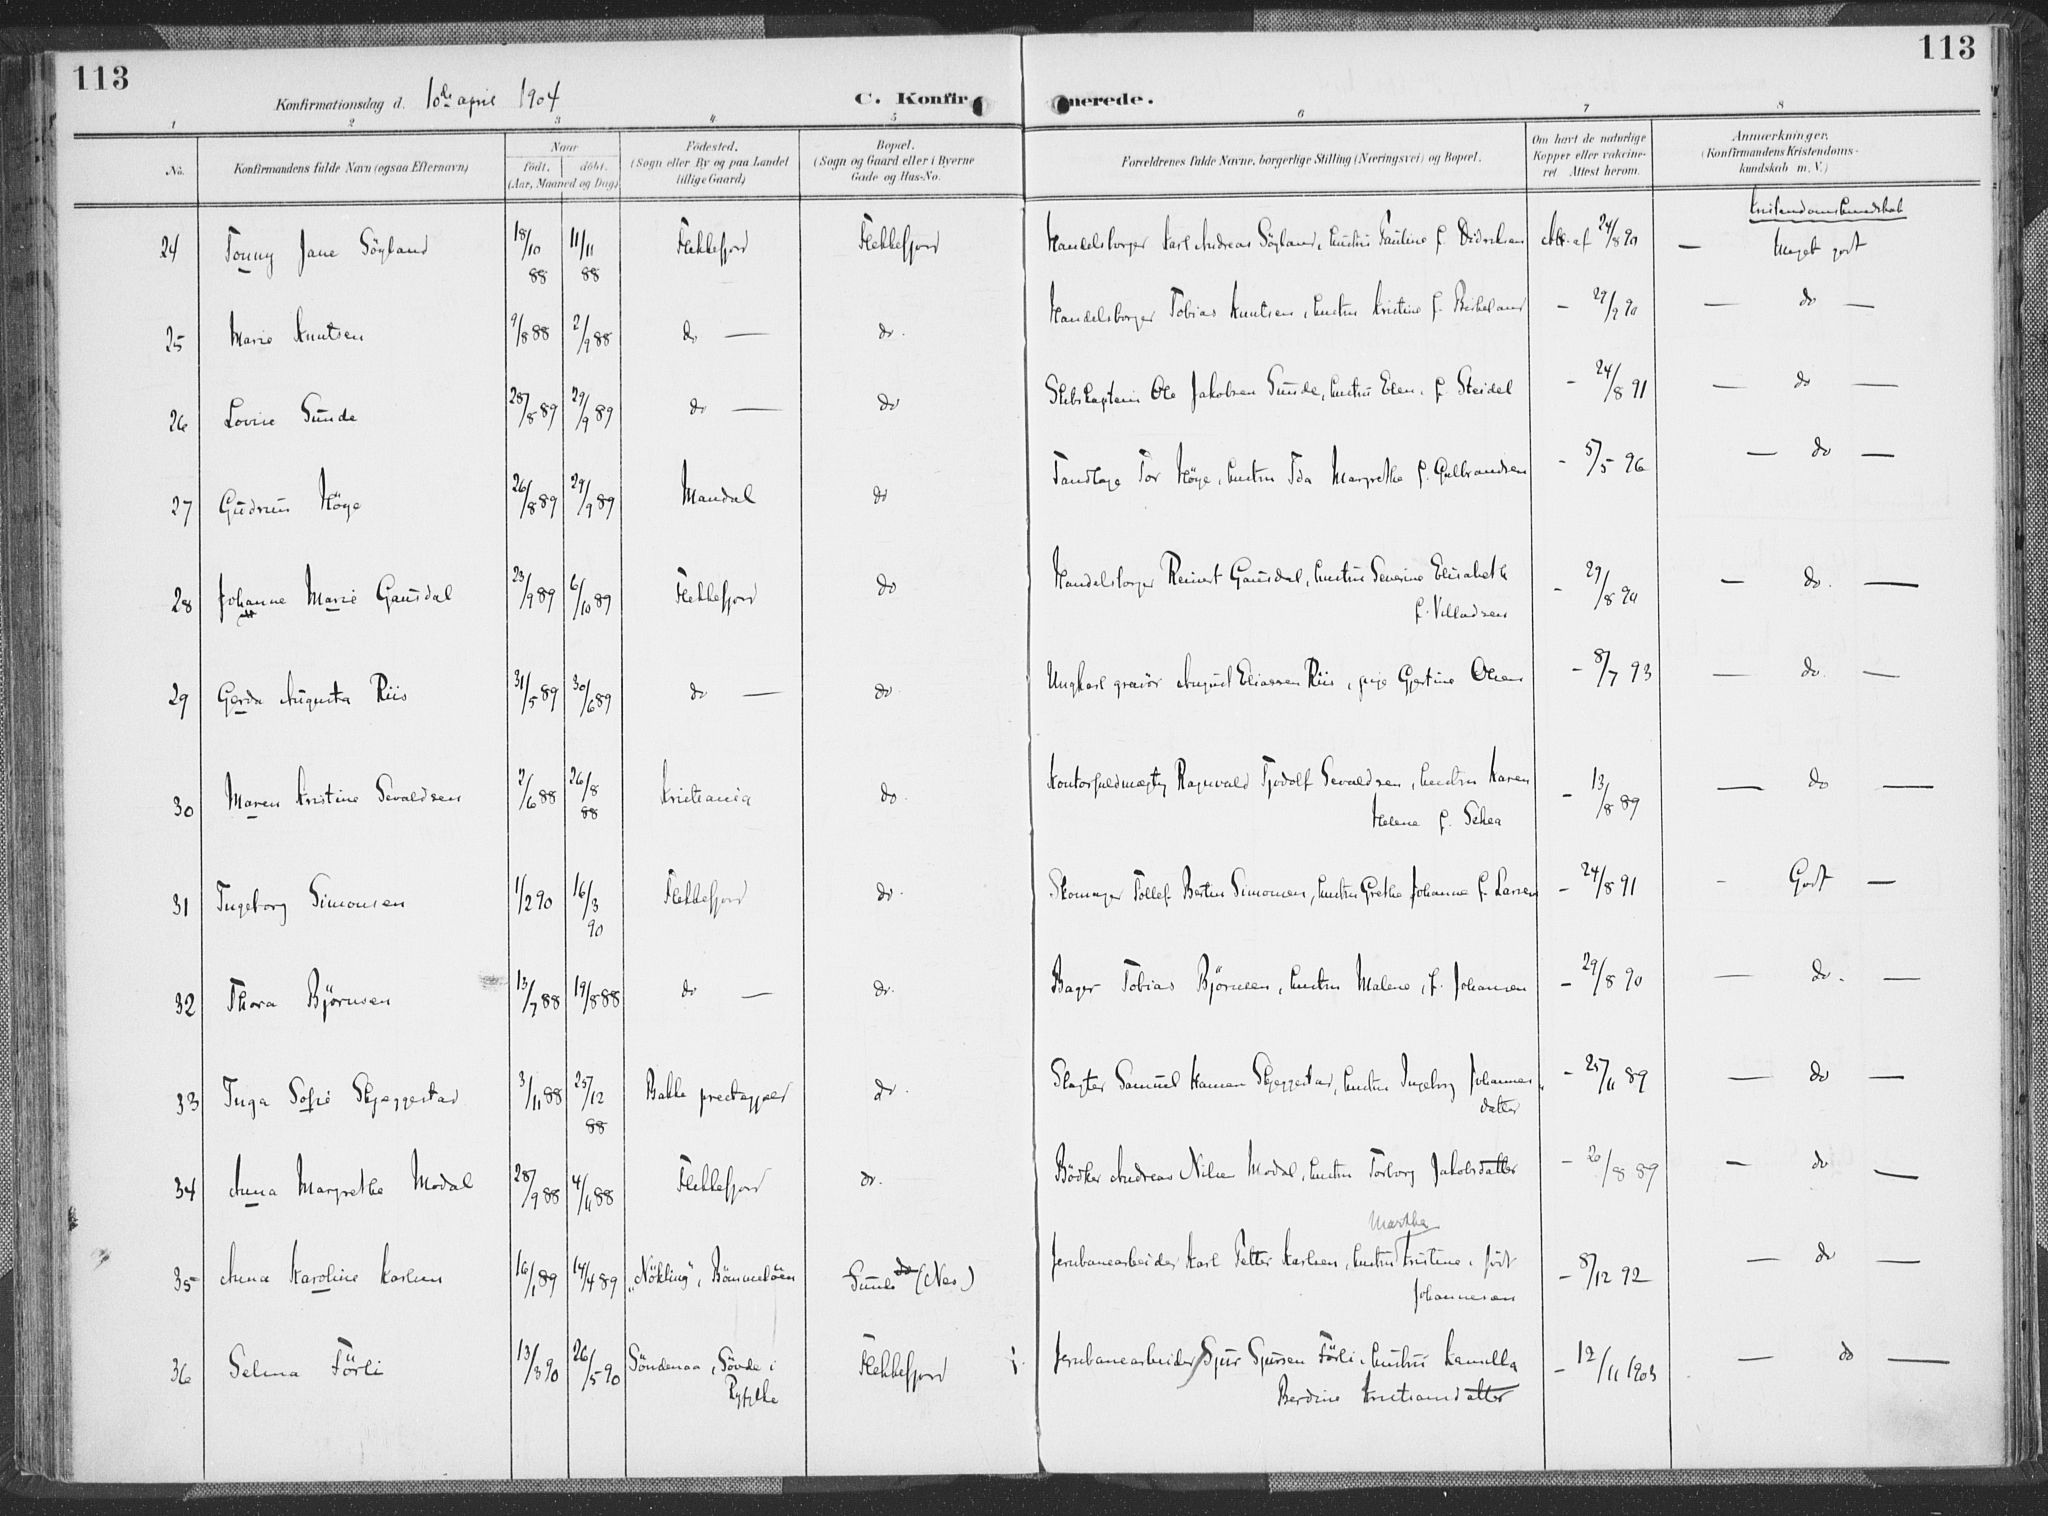 113
113
Konfirmationsdag d. 10de april 1904
C. Konfir merede.
1 2 3 4 5 6 7 8
No. Konfirmandens fulde Navn (ogsaa Efternavn) Naar födt. döbt. (Aar, Maaned og Dag) Födested. (Sogn eller By og paa Landet tillige Gaard) Bopæl. (Sogn og Gaard eller i Byerne Gade og Hus-No. Forældrenes fulde Navne, borgerlige Stilling (Næringsvei) og Bopæl. Om havt de naturlige Kopper eller vakcineret Attest herom. Anmærkninger. (Konfirmandens Kristendomskundskab m. V.)
Kristendomskundskab
24 Tonny Jane Sögland 18/10 88 11/11 88 Flekkefjord Flekkefjord Handelsborger Karl Andreas Sögland, hustru Pauline f. Didriksen Att. af 24/8 90 — Meget godt
25 Marie Knutsen 9/8 88 2/9 88 do — do. Handelsborger Tobias Knutsen, hustru Kristine f. Birkeland - 29/9 90 — do —
26 Lovise Sunde 28/8 89 29/9 89 do — do Skibskaptein Ole Jakobsen Sunde, hustru Elen, f. Steidel - 24/8 91 — do —
27 Gudrun Höye 26/8 89 29/9 89 Mandal do Tandlæge Tor Höye, hustru Ida Margrethe f. Gulbrandsen - 5/5 96 — do —
28 Johanne Marie Gausdal 23/9 89 6/10 89 Flekkefjord do Handelsborger Reinert Gausdal, hustru Severine Elisabeth
f. Villadsen - 29/8 90 — do. —
29 Gerda Augusta Riis 31/5 89 30/6 89 do — do. Ungkarl gravör August Eliassen Riis, pige Gjertine Olsen - 8/7 93 — do. —
30 Maren Kristine Sevaldsen 2/6 88 26/8 88 Kristiania do. Kontorfuldmægtig Ragnvald Tjodolf Sevaldsen, hustru Karen
Helene f. Schea - 13/8 89 — do —
31 Ingeborg Simonsen 1/2 90 16/3 90 Flekkefjord do. Skomager Tollef Bertin Simonsen, hustru Grethe Johanne f. Larsen - 24/8 91 - Godt —
32 Thora Björnsen 13/7 88 19/8 88 do — do. Bager Tobias Björnsen, hustru Malene, f. Johansen - 29/8 90 — do. —
33 Inga Sofie Skjeggestad 3/11 88 25/12 88 Bakke prestegjæld do. Slagter Samuel Hansen Skjeggestad, hustru Ingeborg Johannes
datter - 25/11 89 — do —
34 Anna Margrethe Modal 28/9 88 4/11 88 Flekkefjord do. Bödker Andreas Nilsen Modal, hustru Torborg Jakobsdatter - 26/8 89 — do —
Martha
35 Anna Karoline Karlsen 16/1 89 14/4 89 "Nökling", Bömmelöen Sunde do (Nes.) Jernbanearbeider Karl Petter Karlsen, hustru Kristine, födt
Johannesen - 8/12 92 — do —
36 Selma Förli 13/3 90 26/5 90 Söndenaa, Sövde i
Ryfylke Flekkefjord Jernbanearbeider Sjur Sjursen Förli, hustru Kamilla
Berdine Kristiansdatter - 12/11 1903 — do —